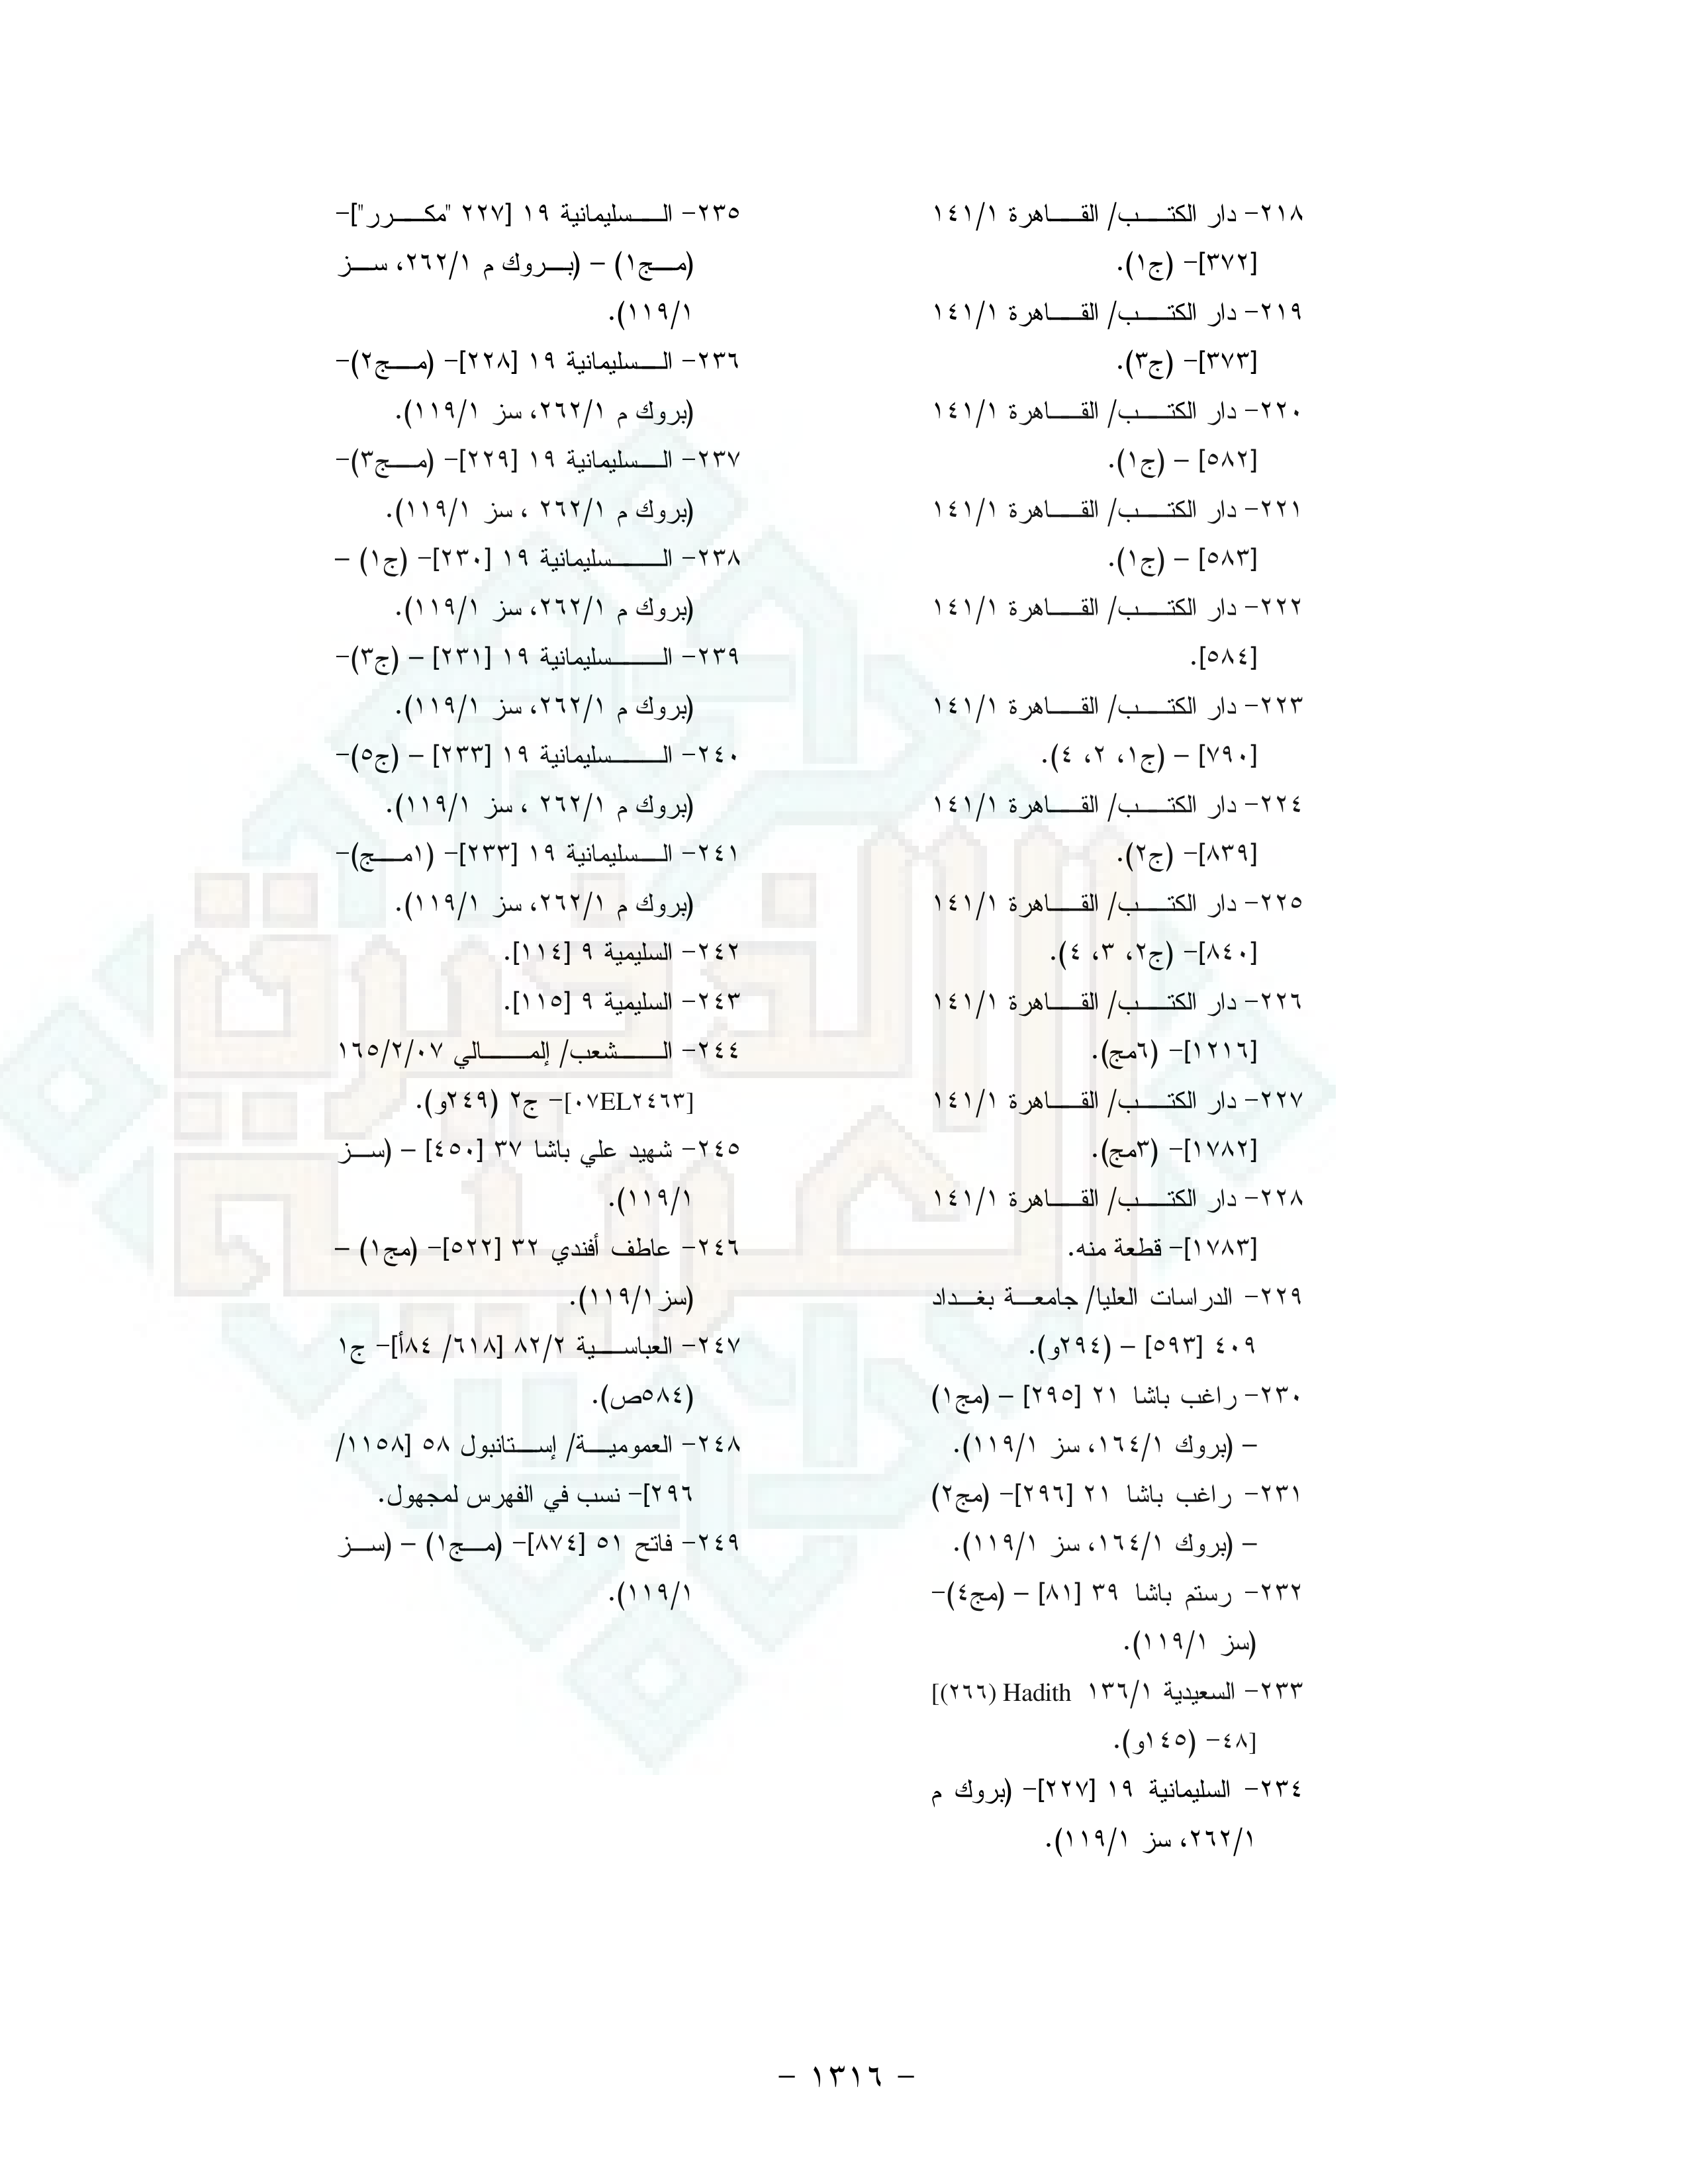 ٢١٨- دار الكتب/ القاهرة ١٤١/١
[٣٧٢]- (ج١).
٢١٩- دار الكتب/ القاهرة ١٤١/١
[٣٧٣]- (ج٣).
٢٢٠- دار الكتب/ القاهرة ١٤١/١
[٥٨٢] – (ج١).
٢٢١- دار الكتب/ القاهرة ١٤١/١
[٥٨٣] – (ج١).
٢٢٢- دار الكتب/ القاهرة ١٤١/١
[٥٨٤].
٢٢٣- دار الكتب/ القاهرة ١٤١/١
[٧٩٠] – (ج١، ٢، ٤).
٢٢٤- دار الكتب/ القاهرة ١٤١/١
[٨٣٩]- (ج٢).
٢٢٥- دار الكتب/ القاهرة ١٤١/١
[٨٤٠]- (ج٢، ٣، ٤).
٢٢٦- دار الكتب/ القاهرة ١٤١/١
[١٢١٦]- (٦مج).
٢٢٧- دار الكتب/ القاهرة ١٤١/١
[١٧٨٢]- (٣مج).
٢٢٨- دار الكتب/ القاهرة ١٤١/١
[١٧٨٣]- قطعة منه.
٢٢٩- الدراسات العليا/ جامعة بغداد
٤٠٩ [٥٩٣] – (٢٩٤و).
٢٣٠- راغب باشا ٢١ [٢٩٥] – (مج١)
– (بروك ١٦٤/١، سز ١١٩/١).
٢٣١- راغب باشا ٢١ [٢٩٦]- (مج٢)
– (بروك ١٦٤/١، سز ١١٩/١).
٢٣٢- رستم باشا ٣٩ [٨١] – (مج٤)-
(سز ١١٩/١).
٢٣٣- السعيدية ١٣٦/١ Hadith (٢٦٦)]
[٤٨- (١٤٥و).
٢٣٤- السليمانية ١٩ [٢٢٧]- (بروك م
٢٦٢/١، سز ١١٩/١).
٢٣٥- السليمانية ١٩ [٢٢٧ "مكرر"]-
(مج١) – (بروك م ٢٦٢/١، سز
١١٩/١).
٢٣٦- السليمانية ١٩ [٢٢٨]- (مج٢)-
(بروك م ٢٦٢/١، سز ١١٩/١).
٢٣٧- السليمانية ١٩ [٢٢٩]- (مج٣)-
(بروك م ٢٦٢/١ ، سز ١١٩/١).
٢٣٨- السليمانية ١٩ [٢٣٠]- (ج١) –
(بروك م ٢٦٢/١، سز ١١٩/١).
٢٣٩- السليمانية ١٩ [٢٣١] – (ج٣)-
(بروك م ٢٦٢/١، سز ١١٩/١).
٢٤٠- السليمانية ١٩ [٢٣٣] – (ج٥)-
(بروك م ٢٦٢/١ ، سز ١١٩/١).
٢٤١- السليمانية ١٩ [٢٣٣]- (١مج)-
(بروك م ٢٦٢/١، سز ١١٩/١).
٢٤٢- السليمية ٩ [١١٤].
٢٤٣- السليمية ٩ [١١٥].
٢٤٤- الشعب/ إلمالي ١٦٥/٢/٠٧
[٠٧EL٢٤٦٣]- ج٢ (٢٤٩و).
٢٤٥- شهيد علي باشا ٣٧ [٤٥٠] – (سز
١١٩/١).
٢٤٦- عاطف أفندي ٣٢ [٥٢٢]- (مج١) –
(سز١١٩/١).
٢٤٧- العباسية ٨٢/٢ [٦١٨/ ٨٤أ]- ج١
(٥٨٤ص).
٢٤٨- العمومية/ إستانبول ٥٨ [١١٥٨/
٢٩٦]- نسب في الفهرس لمجهول.
٢٤٩- فاتح ٥١ [٨٧٤]- (مج١) – (سز
١١٩/١).
الذخيرة
العربية
- ١٣١٦ -